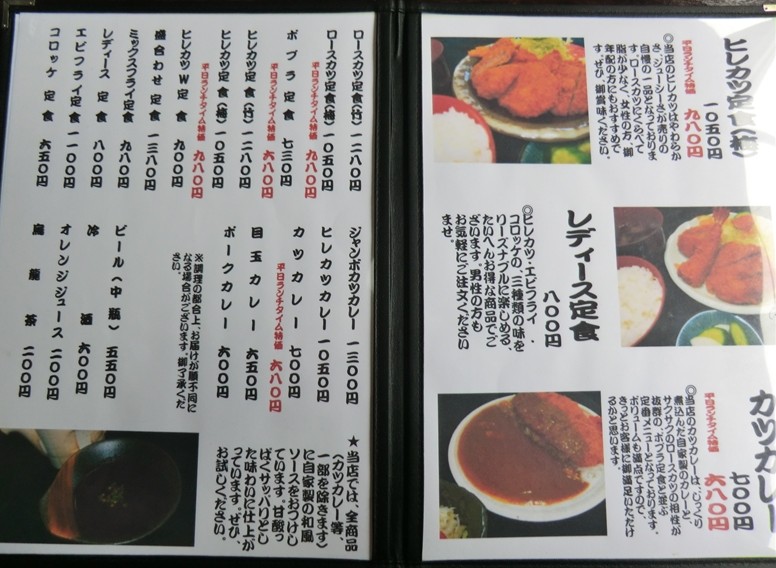 ヒレカツ定食(梅)
一〇五〇円
平日ランチタイム特価 九八〇円
◎当店のヒレカツはやわらか
さ、ジューシーさが売りの
自慢の一品となっておりま
す。ロースカツにくらべて
脂が少なく、女性の方、御
年配の方にもおすすめで
す。ぜひ、御賞味ください。
レディース定食
八〇〇円
◎ヒレカツ・エビフライ・
コロッケの、三種類の味を
リーズナブルに楽しめる、
たいへんお得な商品でご
ざいます。男性の方も
お気軽にご注文ください
ませ。
カツカレー
七〇〇円
平日ランチタイム特価 六八〇円
◎当店のカツカレーは、じっくり
煮込んだ自家製のカレーと、
サクサクのロースカツの相性が
抜群の、ポプラ定食と並ぶ
定番メニューとなっております。
ボリュームも満点ですので、
きっとお客様に御満足いただけ
るかと思います。
ロースカツ定食(竹) 一二八〇円
ロースカツ定食(梅) 一〇五〇円
平日ランチタイム特価 九八〇円
ポプラ定食 七三〇円
平日ランチタイム特価 六八〇円
ヒレカツ定食(竹) 一二八〇円
ヒレカツ定食(梅) 一〇五〇円
平日ランチタイム特価 九八〇円
ヒレカツW定食 九〇〇円
盛合わせ定食 一三八〇円
ミックスフライ定食 九八〇円
レディース定食 八〇〇円
エビフライ定食 一一〇〇円
コロッケ定食 六五〇円
ジャンボカツカレー 一三〇〇円
ヒレカツカレー 一〇五〇円
カツカレー 七〇〇円
平日ランチタイム特価 六八〇円
目玉カレー 六五〇円
ポークカレー 六〇〇円
※調理の都合上、お届けが順不同に
なる場合がございます。御了承くだ
さい。
ビール(中瓶) 五五〇円
冷酒 六〇〇円
オレンジジュース 二〇〇円
烏龍茶 二〇〇円
★当店では、全商品
(カツカレー等、
一部を除きます)
に自家製の和風
ソースをおつけし
ています。甘酸っ
ぱくサッパリとし
た味わいに仕上が
っています。ぜひ、
お試しください。